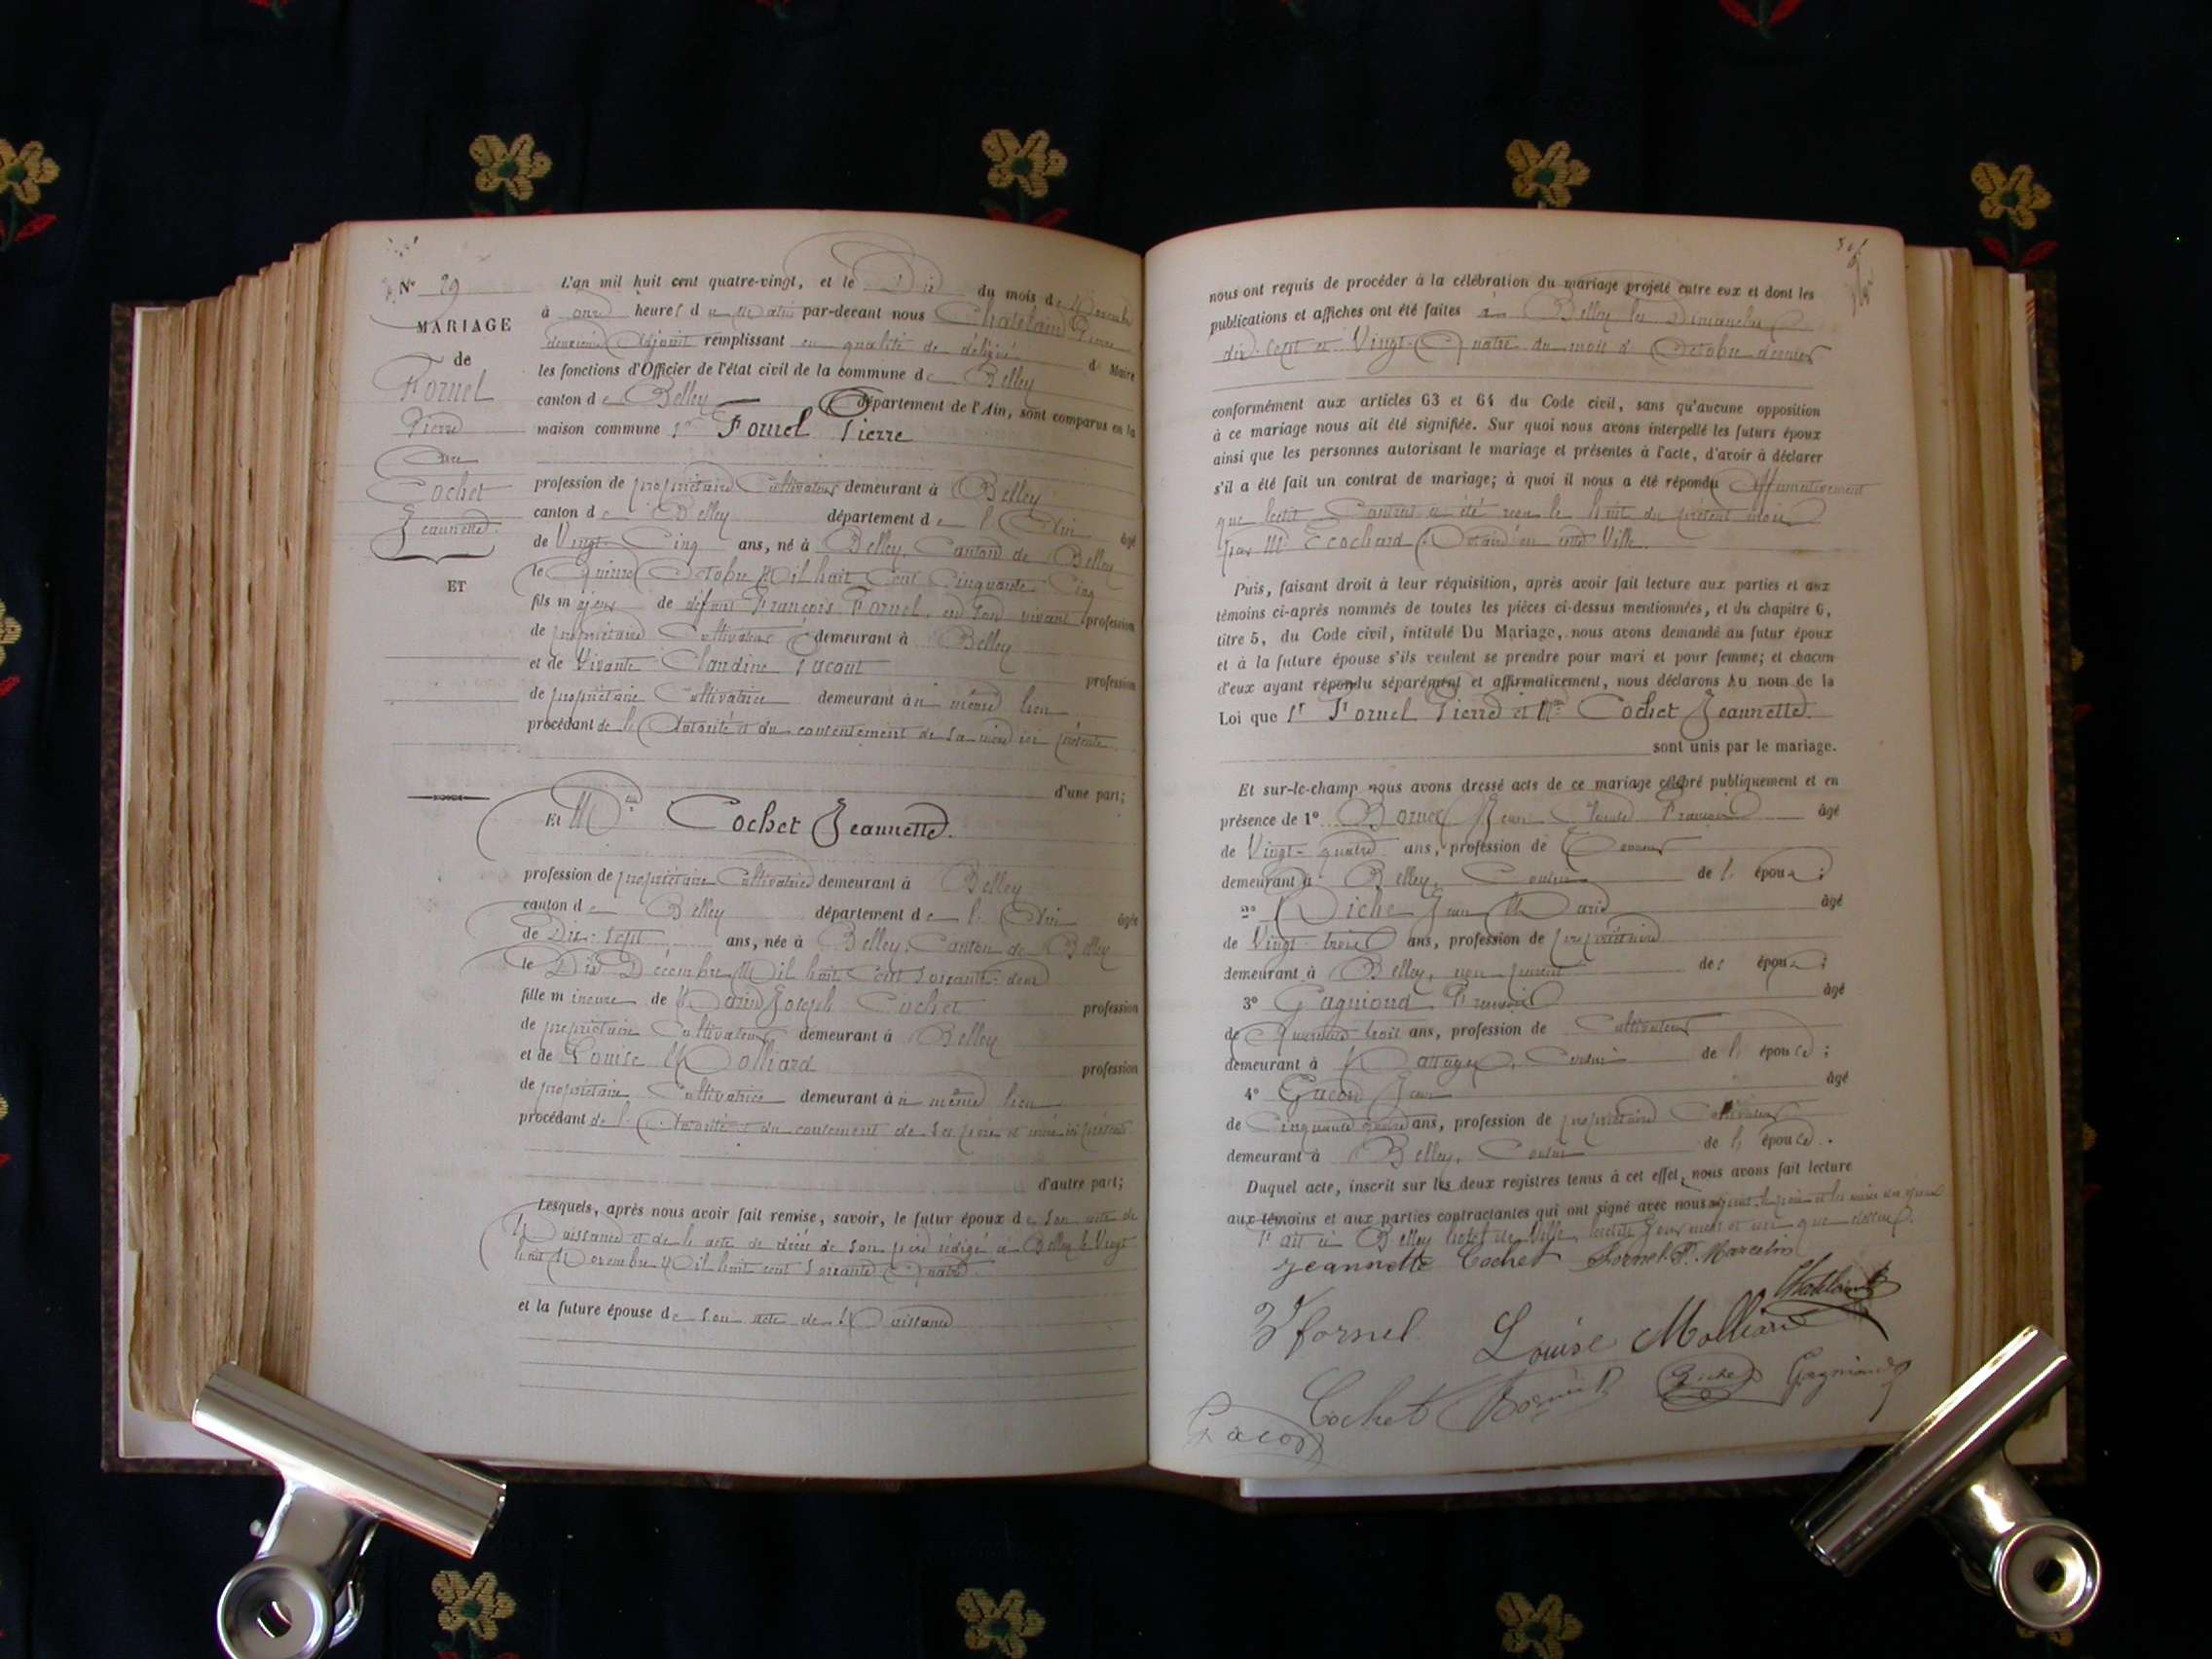 N° 29
MARIAGE
de
Fornel
Pierre
Cochet
Jeannette.
ET
L'an mil huit cent quatre-vingt, et le Dix du mois de Novembre
à onze heures du Matin par-devant nous Chatelain Pierre
deuxième Adjoint remplissant en qualité de délégué du Maire
les fonctions d'Officier de l'état civil de la commune de Belley
canton de Belley département de l'Ain, sont comparus en la
maison commune Sr Fornel Pierre
profession de propriétaire Cultivateur demeurant à Belley
canton de Belley département de l'Ain âgé
de Vingt-Cinq ans, né à Belley, Canton de Belley
le Quinze Octobre Mil huit Cent Cinquante Cinq
fils majeur de défunt François Fornel, en son vivant profession
de propriétaire Cultivateur demeurant à Belley
et de Vivante Claudine profession
de propriétaire Cultivatrice demeurant au même lieu
procédant de l'Autorité et du consentement de sa mère ici présente
d'une part;
Et Mlle Cochet Jeannette.
profession de propriétaire Cultivatrice demeurant à Belley
canton de Belley département de l'Ain âgée
de Dix-Sept ans, née à Belley, Canton de Belley
le Dix Décembre Mil huit Cent Soixante-deux
fille mineure de Marin Joseph Cochet profession
de propriétaire Cultivateur demeurant à Belley
et de Louise Molliard profession
de propriétaire Cultivatrice demeurant au même lieu
procédant de l'Autorité et du de ses père et mère ici présents
d'autre part;
Lesquels, après nous avoir fait remise, savoir, le futur époux de son acte de
Naissance et de l'acte de décès de son père rédigé à Belley le Vingt
huit Novembre Mil huit cent Soixante Quatre.
et la future épouse de son acte de Naissance
nous ont requis de procéder à la célébration du mariage projeté entre eux et dont les
publications et affiches ont été faites à Belley les Dimanches
dix-sept et Vingt-Quatre du mois d'Octobre dernier
conformément aux articles 63 et 64 du Code civil, sans qu'aucune opposition
à ce mariage nous ait été signifiée. Sur quoi nous avons interpellé les futurs époux
ainsi que les personnes autorisant le mariage et présentes à l'acte, d'avoir à déclarer
s'il a été fait un contrat de mariage; à quoi il nous a été répondu Affirmativement
que ledit Contrat a été reçu le huit du présent mois
par Me Ecochard Notaire en cette Ville.
Puis, faisant droit à leur réquisition, après avoir fait lecture aux parties et aux
témoins ci-après nommés de toutes les pièces ci-dessus mentionnées, et du chapitre 6,
titre 5, du Code civil, intitulé Du Mariage, nous avons demandé au futur époux
et à la future épouse s'ils veulent se prendre pour mari et pour femme; et chacun
d'eux ayant répondu séparément et affirmativement, nous déclarons Au nom de la
Loi que Sr Fornel Pierre et Mlle Cochet Jeannette.
sont unis par le mariage.
Et sur-le-champ nous avons dressé acte de ce mariage célébré publiquement et en
présence de 1° Jean François âgé
de Vingt-quatre ans, profession de
demeurant à Belley, Cousin de l'époux;
2° Riche Jean Marie âgé
de Vingt-trois ans, profession de propriétaire
demeurant à Belley, non parent des époux;
3° Gagnioud François âgé
de Quarante trois ans, profession de Cultivateur
demeurant à Cousin de l'épouse;
4° Gacon Jean âgé
de Cinquante ans, profession de propriétaire Cultivateur
demeurant à Belley, Cousin de l'épouse.
Duquel acte, inscrit sur les deux registres tenus à cet effet, nous avons fait lecture
aux témoins et aux parties contractantes qui ont signé avec nous
Fait à Belley hotel de Ville, lesdits jour mois et an que dessus.
Jeannette Cochet Fornel P. Marcelin
Chatelain
Fornel Louise Molliard
Cochet Riche Gagnioud
Gacon